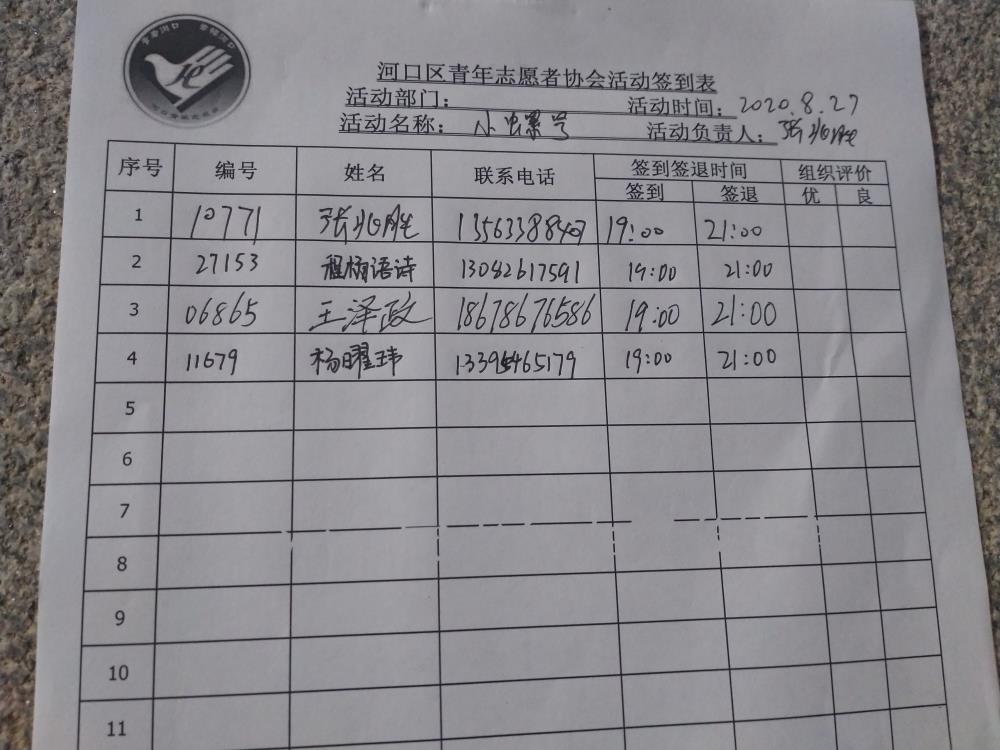 河口区青年志愿者协会活动签到表
活动部门： 活动时间：2020.8.27
活动名称： 活动负责人：张兆胜
序号 编号 姓名 联系电话 签到签退时间 组织评价
签到 签退 优 良
1 10771 张兆胜 13563388407 19:00 21:00
2 27153 程杨语诗 13082617591 19:00 21:00
3 06865 王泽政 18678676586 19:00 21:00
4 11679 杨曜玮 19:00 21:00
5
6
7
8
9
10
11